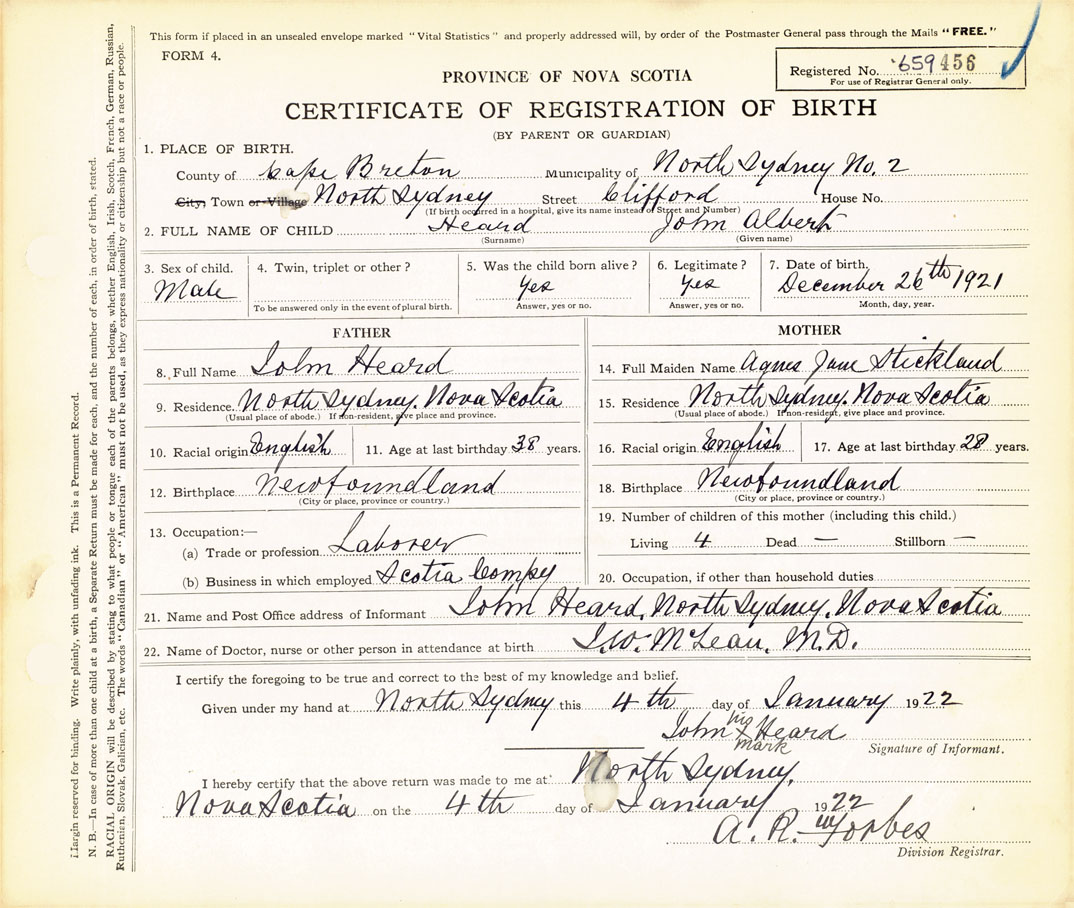 This form if placed in an unsealed envelope marked "Vital Statistics" and properly addressed will, by order of the Postmaster General pass through the Mails "FREE."
FORM 4.
Registered No. 659456
For use of Registrar General only.
PROVINCE OF NOVA SCOTIA
CERTIFICATE OF REGISTRATION OF BIRTH
(BY PARENT OR GUARDIAN)
1. PLACE OF BIRTH.
County of Cape Breton Municipality of North Sydney No. 2
City, Town or Village North Sydney Street Clifford House No.
(If birth occurred in a hospital, give its name instead of Street and Number)
2. FULL NAME OF CHILD Heard John Albert
(Surname) (Given name)
3. Sex of child. 4. Twin, triplet or other? 5. Was the child born alive? 6. Legitimate? 7. Date of birth.
Male Yes Yes December 26th 1921
To be answered only in the event of plural birth. Answer, yes or no. Answer, yes or no. Month, day, year.
FATHER
8. Full Name John Heard
9. Residence. North Sydney. Nova Scotia
(Usual place of abode.) If non-resident, give place and province.
10. Racial origin English 11. Age at last birthday 38 years.
12. Birthplace Newfoundland
(City or place, province or country.)
13. Occupation:—
(a) Trade or profession Laborer
(b) Business in which employed Scotia Compy
MOTHER
14. Full Maiden Name Agnes Jane Stickland
15. Residence North Sydney. Nova Scotia
(Usual place of abode.) If non-resident, give place and province.
16. Racial origin English 17. Age at last birthday 28 years.
18. Birthplace Newfoundland
(City or place, province or country.)
19. Number of children of this mother (including this child.)
Living 4 Dead — Stillborn —
20. Occupation, if other than household duties
21. Name and Post Office address of Informant John Heard, North Sydney, Nova Scotia
22. Name of Doctor, nurse or other person in attendance at birth J.W. McLean, M.D.
I certify the foregoing to be true and correct to the best of my knowledge and belief.
Given under my hand at North Sydney this 4th day of January 1922
John his X mark Heard
Signature of Informant.
I hereby certify that the above return was made to me at North Sydney,
Nova Scotia on the 4th day of January 1922
A. R. Forbes
Division Registrar.
Margin reserved for binding. Write plainly, with unfading ink. This is a Permanent Record.
N. B.—In case of more than one child at a birth, a Separate Return must be made for each, and the number of each, in order of birth, stated.
RACIAL ORIGIN will be described by stating to what people or tongue each of the parents belongs, whether English, Irish, Scotch, French, German, Russian,
Ruthenian, Slovak, Galician, etc. The words "Canadian" or "American" must not be used, as they express nationality or citizenship but not a race or people.